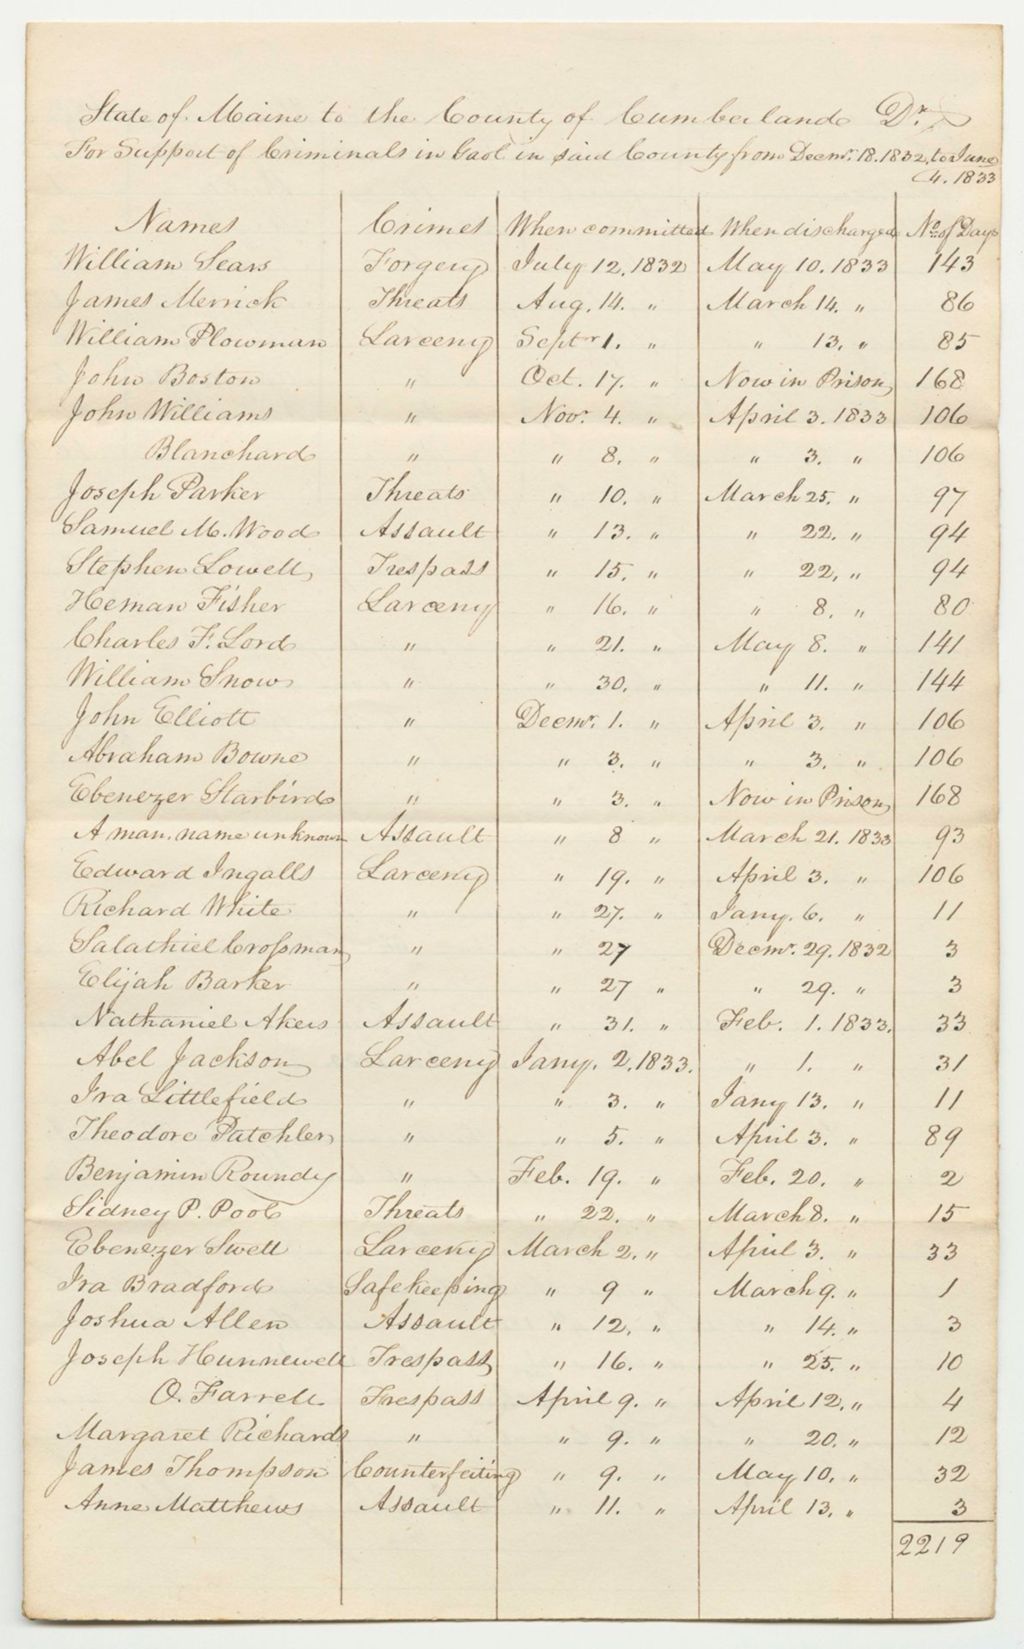 State of Maine to the County of Cumberland Dr.
For Support of Criminals in Gaol in said County from Decmr. 18. 1832, to June
4. 1833
Names Crimes When committed When discharged No. of Days
William Sears Forgery July 12, 1832 May 10. 1833 143
James Merrick Threats Aug. 14. " March 14. " 86
William Plowman Larceny Septr 1. " " 13. " 85
John Boston " Oct. 17. " Now in Prison 168
John Williams " Nov. 4. " April 3. 1833 106
Blanchard " " 8. " " 3. " 106
Joseph Parker Threats " 10. " March 25. " 97
Samuel M. Wood Assault " 13. " " 22. " 94
Stephen Lowell Trespass " 15. " " 22. " 94
Heman Fisher Larceny " 16. " " 8. " 80
Charles F. Lord " " 21. " May 8. " 141
William Snow " " 30. " " 11. " 144
John Elliott " Decmr. 1. " April 3. " 106
Abraham Bowne " " 3. " " 3. " 106
Ebenezer Starbird " " 3. " Now in Prison 168
A man. name unknown Assault " 8 " March 21. 1833 93
Edward Ingalls Larceny " 19. " April 3. " 106
Richard White " " 27. " Jany. 6. " 11
Salathiel Crossman " " 27 Decmr. 29. 1832 3
Elijah Barker " " 27 " " 29. " 3
Nathaniel Akers Assault " 31. " Feb. 1. 1833. 33
Abel Jackson Larceny Jany. 2. 1833. " 1. " 31
Ira Littlefield " " 3. " Jany 13. " 11
Theodore Patchler " " 5. " April 3. " 89
Benjamin Roundy " Feb. 19. " Feb. 20. " 2
Sidney P. Pool Threats " 22. " March 8. " 15
Ebenezer Swett Larceny March 2. " April 3. " 33
Ira Bradford Safekeeping " 9 " March 9. " 1
Joshua Allen Assault " 12. " " 14. " 3
Joseph Hunnewell Trespass " 16. " " 25. " 10
O. Farrell Trespass April 9. " April 12. " 4
Margaret Richards " " 9. " " 20. " 12
James Thompson Counterfeiting " 9. " May 10. " 32
Anne Matthews Assault " 11. " April 13. " 3
2219